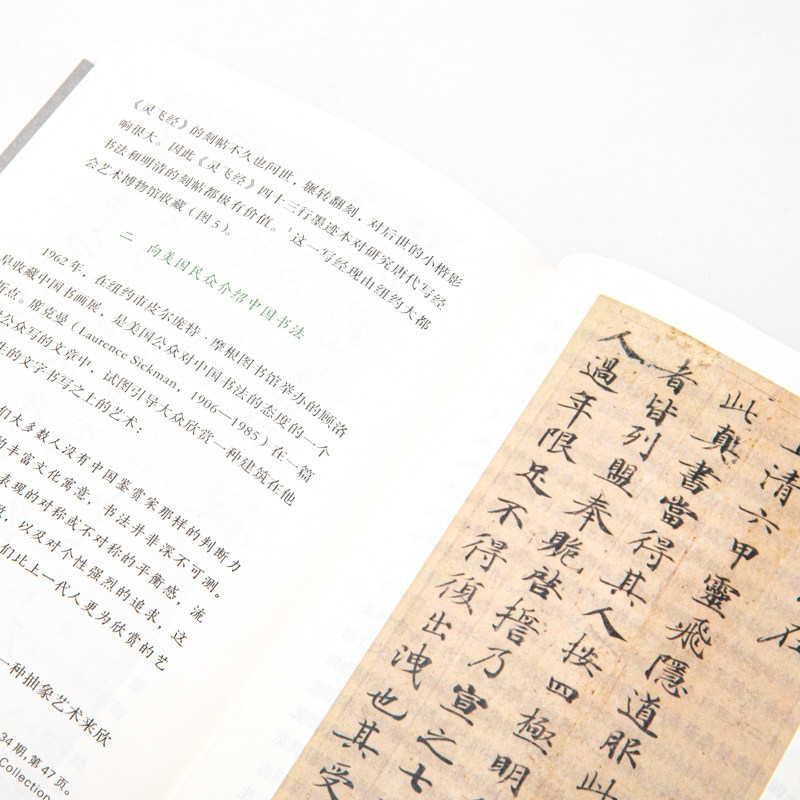 《灵飞经》的刻帖不久也问世，辗转翻刻，对后世的小楷影
响很大。因此《灵飞经》四十三行墨迹本对研究唐代写经
书法和明清的刻帖都极有价值。¹这一写经现由纽约大都
会艺术博物馆收藏（图5）。
二 向美国民众介绍中国书法
1962年，在纽约市皮尔庞特·摩根图书馆举办的顾洛
阜收藏中国书画展，是美国公众对中国书法的态度的一个
折点。席克曼（Laurence Sickman, 1906—1985）在一篇
公众写的文章中，试图引导大众欣赏一种建筑在他
生的文字书写之上的艺术：
们大多数人没有中国鉴赏家那样的判断力
的丰富文化寓意，书法并非深不可测。
表现的对称或不对称的平衡感，流
，以及对个性强烈的追求，这
们比上一代人更为欣赏的艺
一种抽象艺术来欣
34期，第47页。
Collection
在
上清六甲靈飛隱道服此
此真書當得其人按四極明
者皆列盟奉脆啓擔乃宣之七
人過年限足不得復出洩也其受